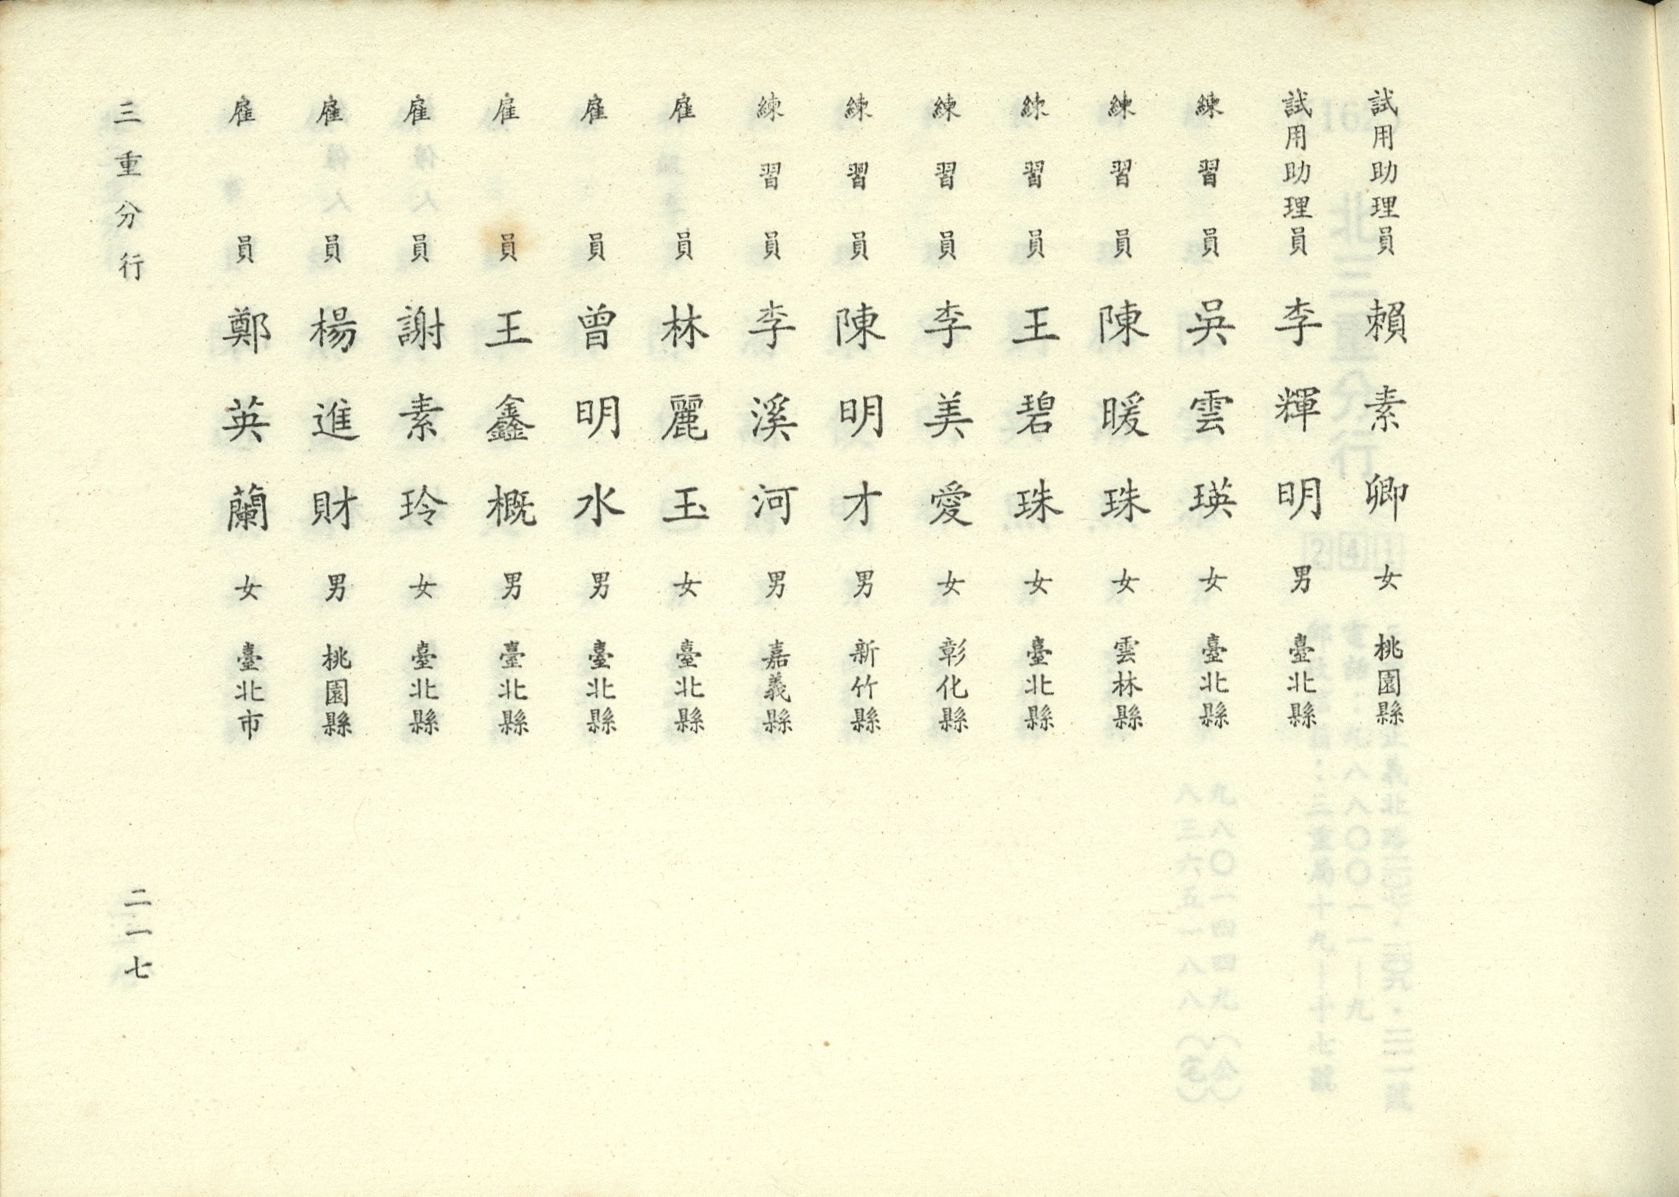 試用助理員 賴素卿 女 桃園縣
試用助理員 李輝明 男 臺北縣
練習員 吳雲瑛 女 臺北縣
練習員 陳暖珠 女 雲林縣
練習員 王碧珠 女 臺北縣
練習員 李美愛 女 彰化縣
練習員 陳明才 男 新竹縣
練習員 李溪河 男 嘉義縣
雇員 林麗玉 女 臺北縣
雇員 曾明水 男 臺北縣
雇員 王鑫概 男 臺北縣
雇員 謝素玲 女 臺北縣
雇員 楊進財 男 桃園縣
雇員 鄭英蘭 女 臺北市
三重分行 二一七